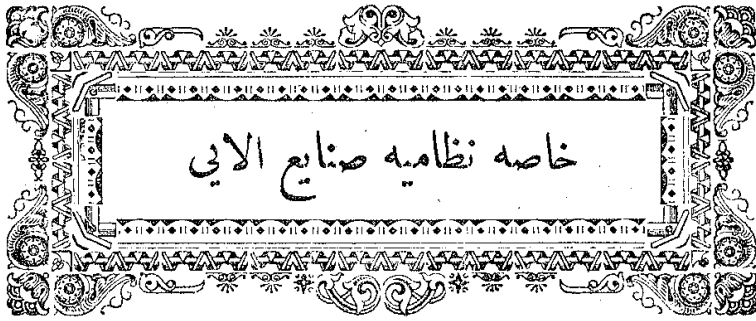 خاصه نظامیه صنایع الایی